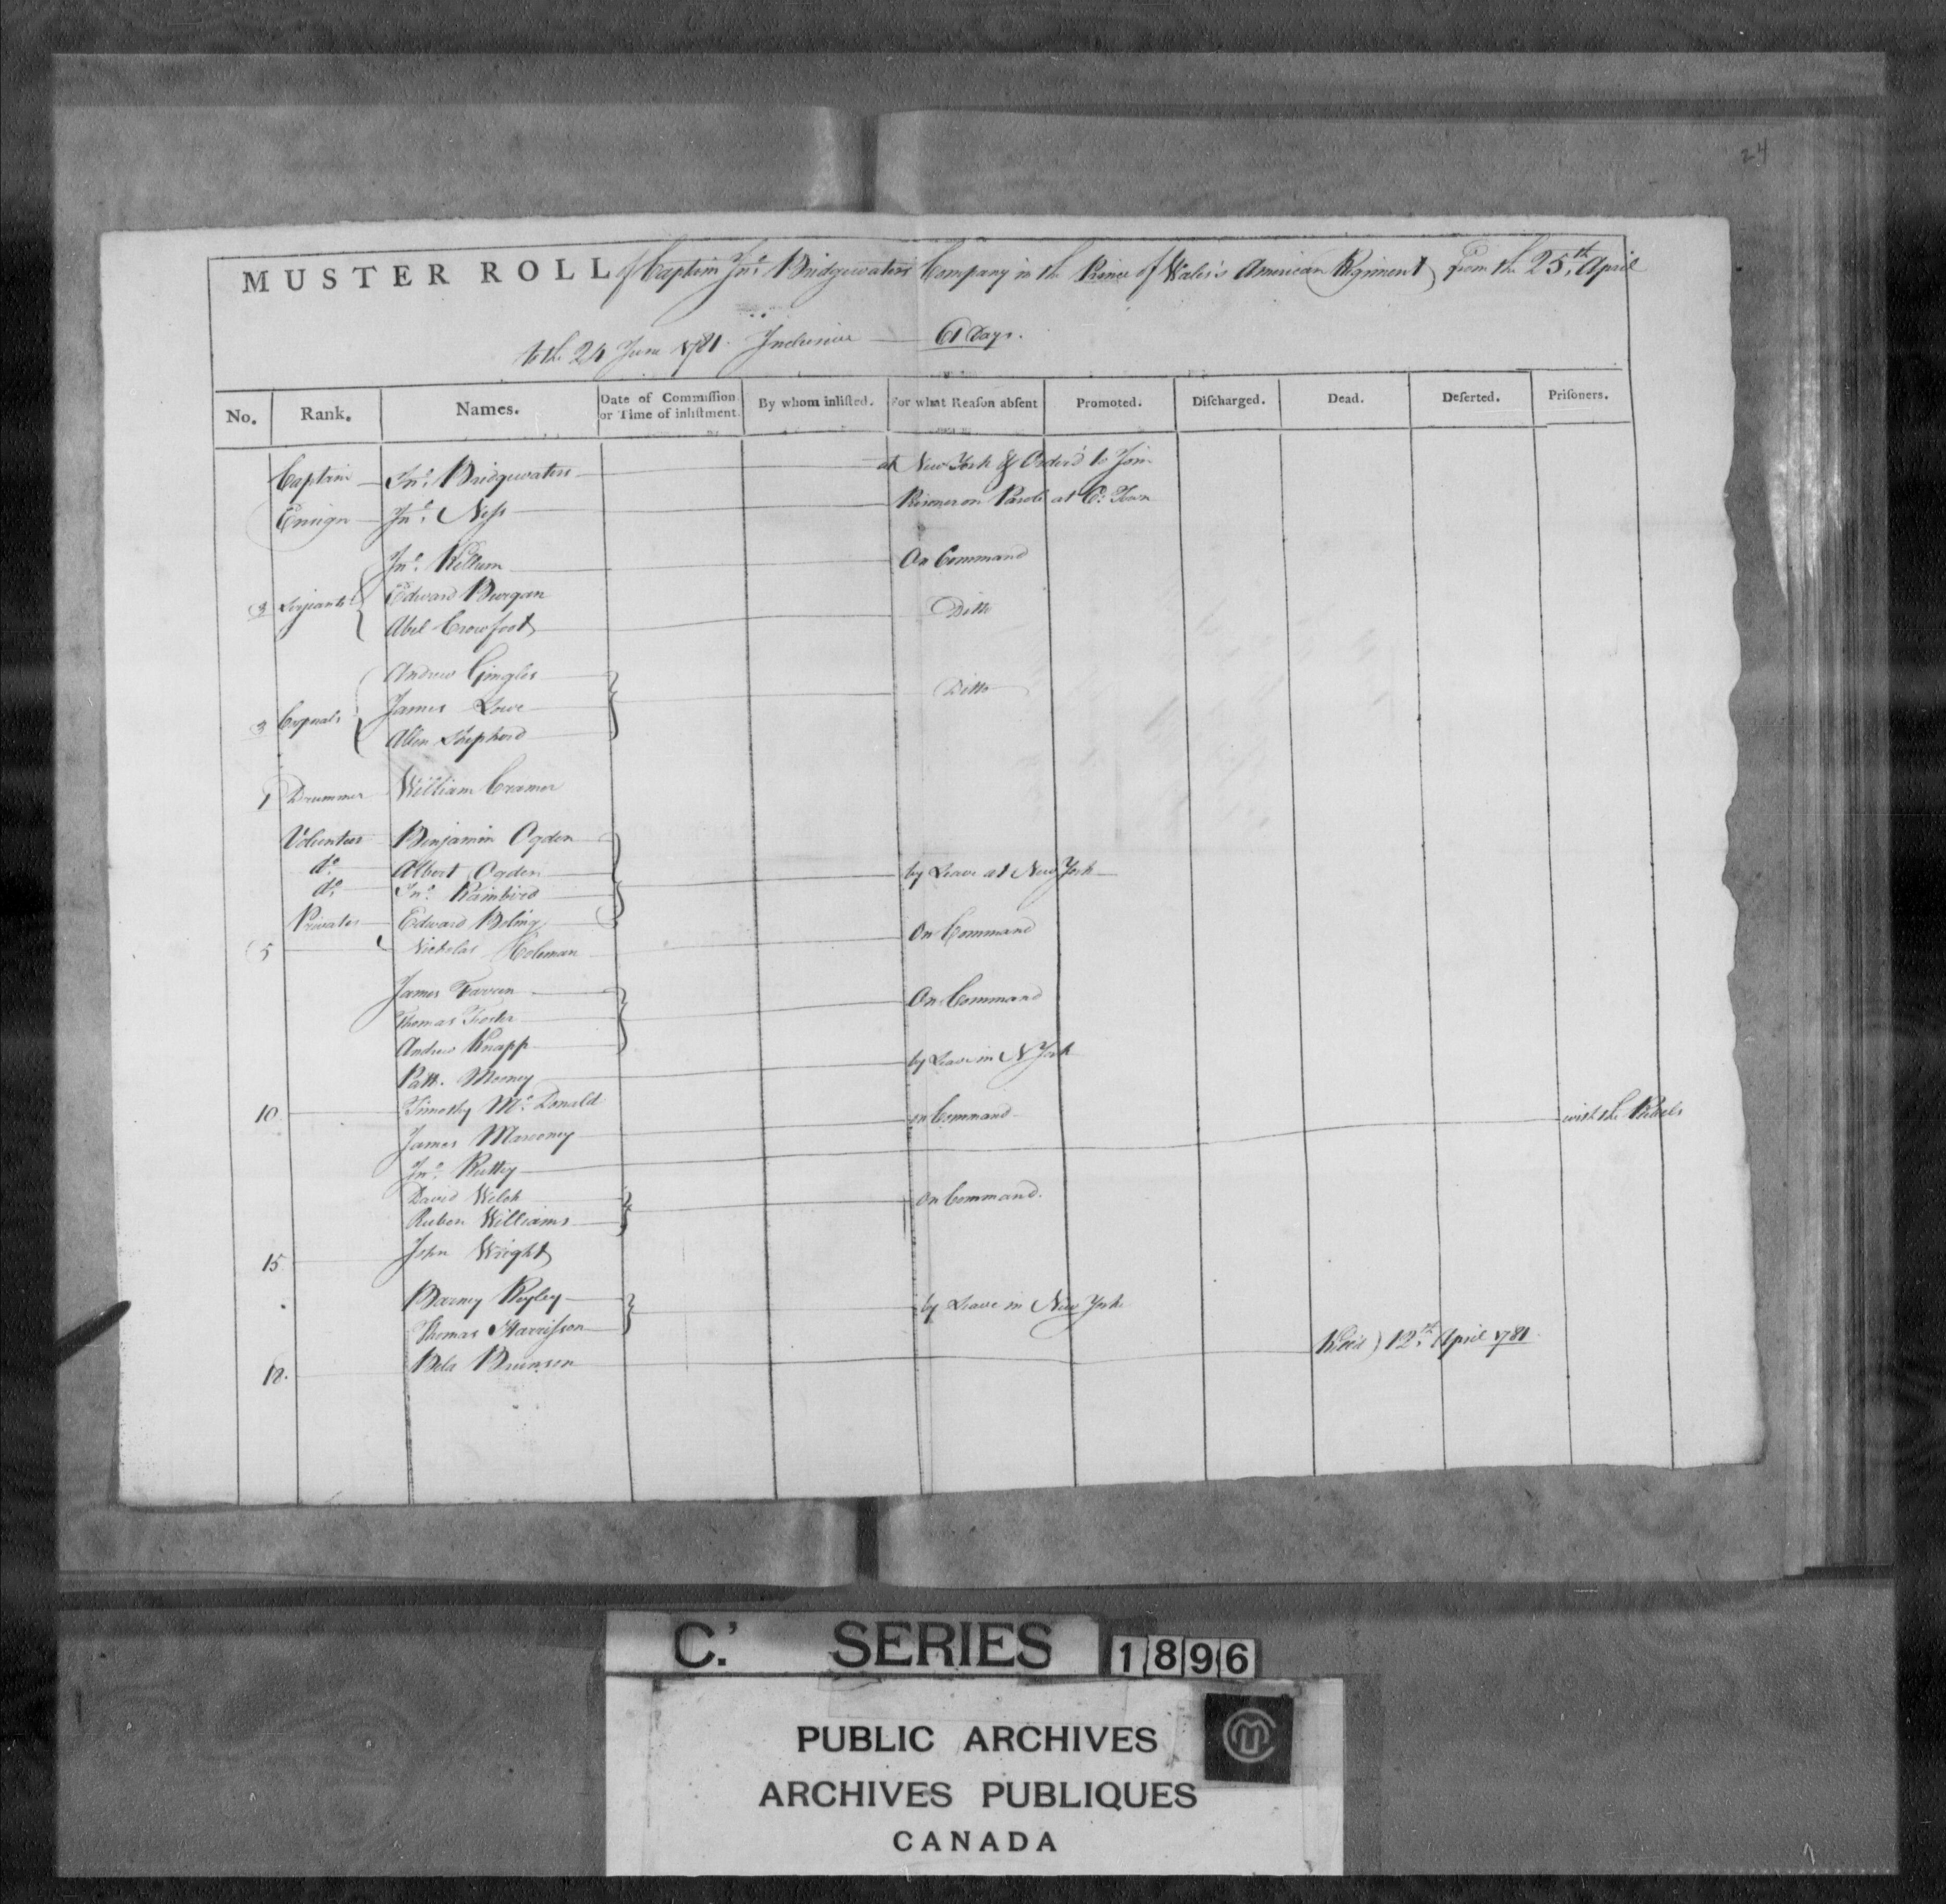 24
MUSTER ROLL of Captain Jno. Bridgewaters Company in the Prince of Wales's American Regiment from the 25th April
to the 24 June 1781 Inclusive — 61 Days.
No. Rank. Names. Date of Commission or Time of inlistment. By whom inlisted. For what Reason absent Promoted. Discharged. Dead. Deserted. Prisoners.
Captain Jno. Bridgewaters at New York & Order'd to Join
Ensign Jno. Ness Prisoner on Parole at C. Town
Jno. Kellum On Command
3 Serjeants Edward Burgan
Abel Crowfoot Ditto
Andrew Gingles
James Lowe Ditto
3 Corporals Allen Shepherd
1 Drummer William Cramer
Volunteer Benjamin Ogden
do. Albert Ogden by Leave at New York
do. Jno. Rainbird
Privates Edward Beling
5 Nicholas Coleman On Command
James Farren
Thomas Foster On Command
Andrew Knapp
Patt. Mooney by Leave in N York
10 Timothy Mc. Donald
James Marooney on Command
Jno. Ruttey with the Rebels
David Welch
Ruben Williams On Command.
15 John Wright
Barney Ryley
Thomas Harrisson by Leave in New York
18. Bela Brunson Kill'd 12th April 1781
C.' SERIES 1896
PUBLIC ARCHIVES
ARCHIVES PUBLIQUES
CANADA